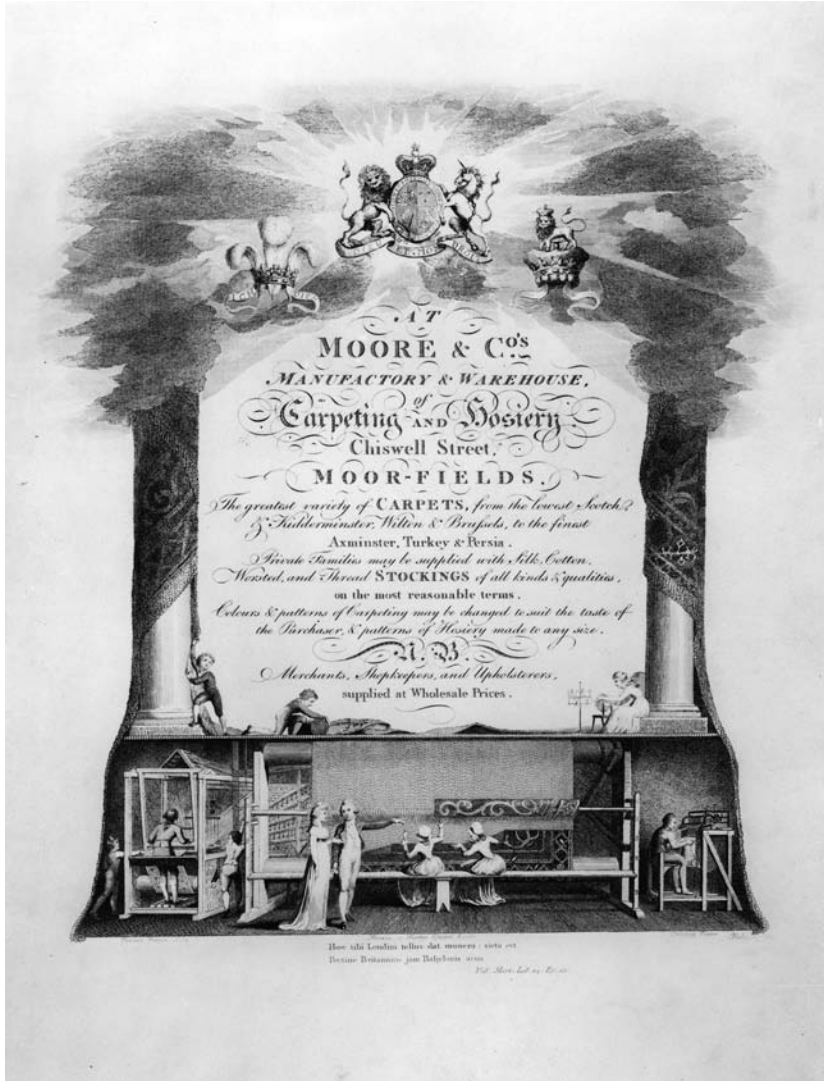 AT
MOORE & Co's
MANUFACTORY & WAREHOUSE,
of
Carpeting AND Hosiery
Chiswell Street,
MOOR-FIELDS.
The greatest variety of CARPETS, from the lowest Scotch
& Kidderminster, Wilton & Brussels, to the finest
Axminster, Turkey & Persia.
Private Families may be supplied with Silk, Cotton,
Worsted, and Thread STOCKINGS of all kinds & qualities,
on the most reasonable terms.
Colours & patterns of Carpeting may be changed to suit the taste of
the Purchaser, & patterns of Hosiery made to any size.
N.B.
Merchants, Shopkeepers, and Upholsterers,
supplied at Wholesale Prices.
Hæc tibi Londini tellus dat munera: victa est
Pectine Britannico jam Babylonis acus